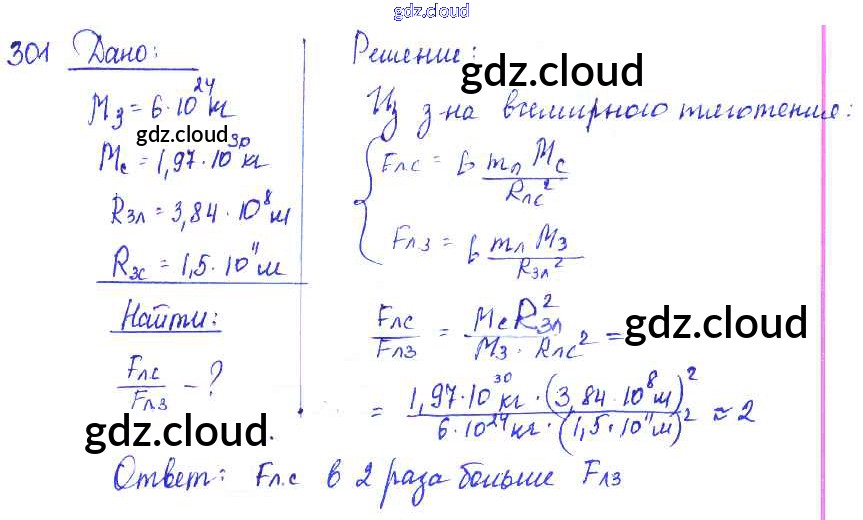 gdz.cloud
301 Дано:
M_З = 6·10²⁴ кг
gdz.cloud
M_с = 1,97·10³⁰ кг
R_ЗЛ = 3,84·10⁸ м
R_ЗС = 1,5·10¹¹ м
Найти:
F_ЛС / F_ЛЗ - ?
gdz.cloud
Решение:
gdz.cloud
Из з-на всемирного тяготения:
F_ЛС = G m_Л M_С / R_ЛС²
F_ЛЗ = G m_Л M_З / R_ЗЛ²
F_ЛС / F_ЛЗ = M_С R²_ЗЛ / M_З · R_ЛС² =
gdz.cloud
= 1,97·10³⁰ кг · (3,84·10⁸ м)² / 6·10²⁴ кг · (1,5·10¹¹ м)² ≈ 2
gdz.cloud
Ответ: F_Л.С в 2 раза больше F_ЛЗ